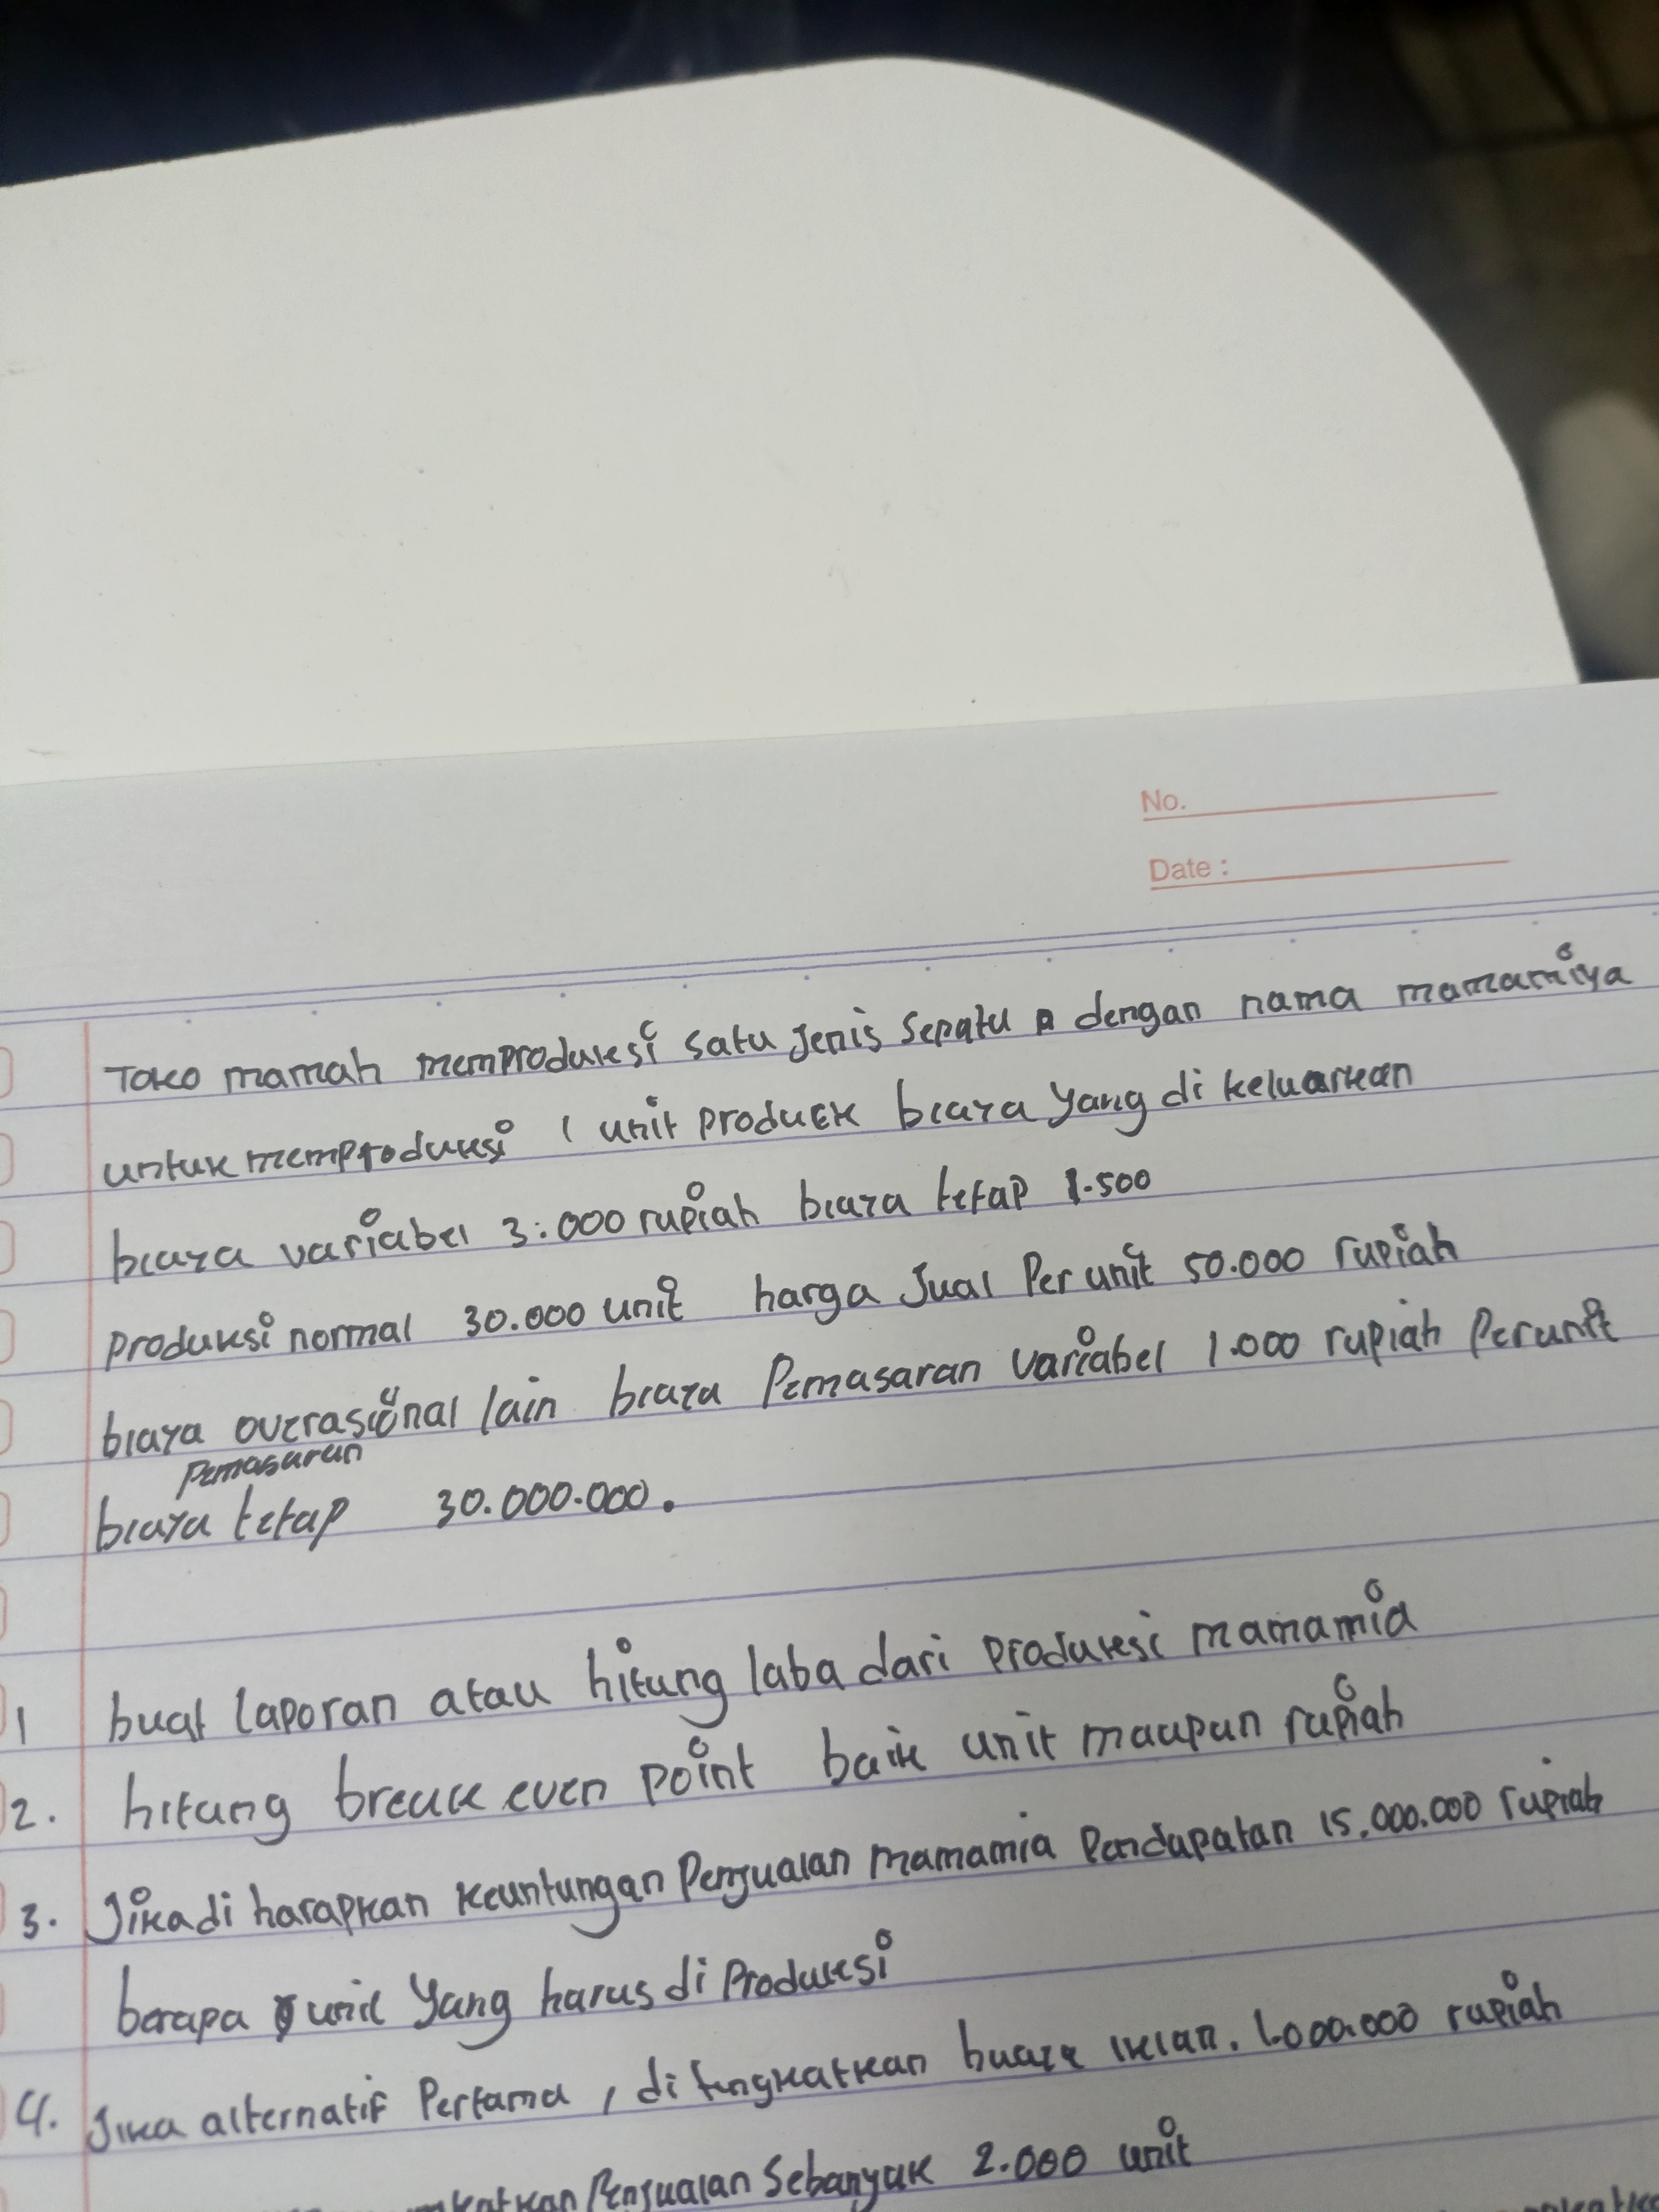 No.
Date :
Toko mamah memproduksi satu jenis sepatu dengan nama mamamiya
untuk memproduksi 1 unit produck biaya yang di keluarkan
biaya variabel 3.000 rupiah biaya tetap 1.500
produksi normal 30.000 unit harga Jual Per unit 50.000 rupiah
biaya overasional lain biaya Pemasaran variabel 1.000 rupiah Perunit
pemasaran
biaya tetap 30.000.000.
1 buat laporan atau hitung laba dari produksi mamamia
2. hitung breack even point baik unit maupun rupiah
3. Jika di harapkan keuntungan Penjualan mamamia Pendapatan 15.000.000 rupiah
berapa unit yang harus di Produksi
4. Jika alternatif Pertama, di tingkatkan biaya iklan. 1.000.000 rupiah
Penjualan Sebanyak 2.000 unit